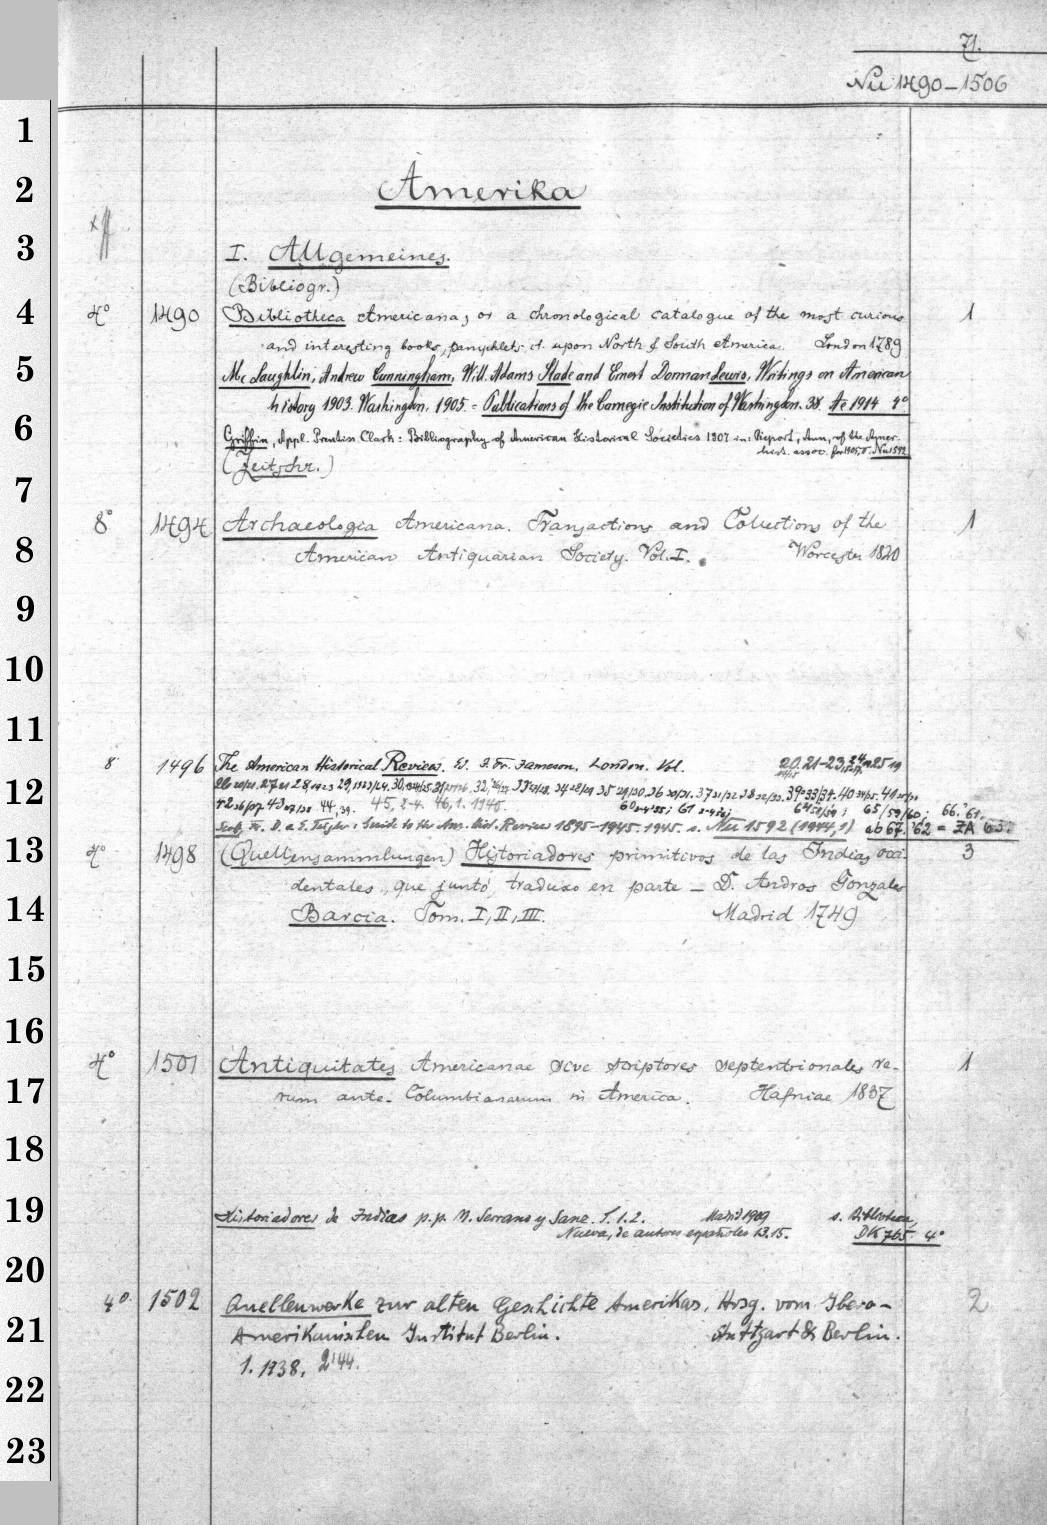 71.
Nu 1490-1506
1
2
3
4
5
6
7
8
9
10
11
12
13
14
15
16
17
18
19
20
21
22
23
Amerika
I. Allgemeines.
(Bibliogr.)
4° 1490 Bibliotheca Americana, or a chronological catalogue of the most curious 1
and interesting books, pamphlets et. upon North & South America. London 1789
Mc Laughlin, Andrew Cunningham, Will. Adams Slade and Ernest Dorman Lewis, Writings on American
history 1903. Washington. 1905. = Publications of the Carnegie Institution of Washington. 38. Ae 1914 4°
Griffin, Appl. Prentiss Clark: Bibliography of American Historical Societies 1907 in: Report, Ann, of the Amer.
hist. assoc. for 1905, II. Nu 1592
(Zeitschr.)
8° 1494 Archaeologia Americana. Transactions and Collections of the 1
American Antiquarian Society. Vol. I. Worcester 1820
8 1496 The American Historical Review. Ed. J. Fr. Jameson. London. Vol. 20. 21-23, 24 25
44, 39. 45, 2-4. 46, 1. 1940.
Guide to the Am. Hist. Review 1895-1945. 1945. s. Nu 1592 (1944,1) ab 67. '62 = ZA 63.
4° 1498 (Quellensammlungen) Historiadores primitivos de las Indias occi- 3
dentales, que juntó traduxo en parte - D. Andros Gonzales
Barcia. Tom. I, II, III. Madrid 1749
4° 1501 Antiquitates Americanae sive scriptores septentrionales re- 1
rum ante-Columbianarum in America. Hafniae 1837
Historiadores de Indias p.p. M. Serrano y Sanz. T. 1. 2. Madrid 1909 s. Biblioteca,
Nueva, de autores españoles 13. 15. DK 765 4°
4° 1502 Quellenwerke zur alten Geschichte Amerikas, Hrsg. vom Ibero- 2
Amerikanischen Institut Berlin. Stuttgart & Berlin.
1. 1938, 2'44.